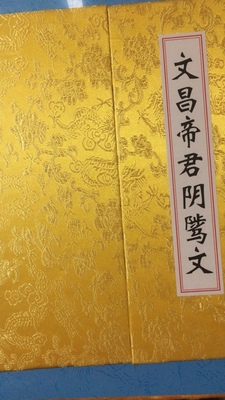 文昌帝君阴骘文